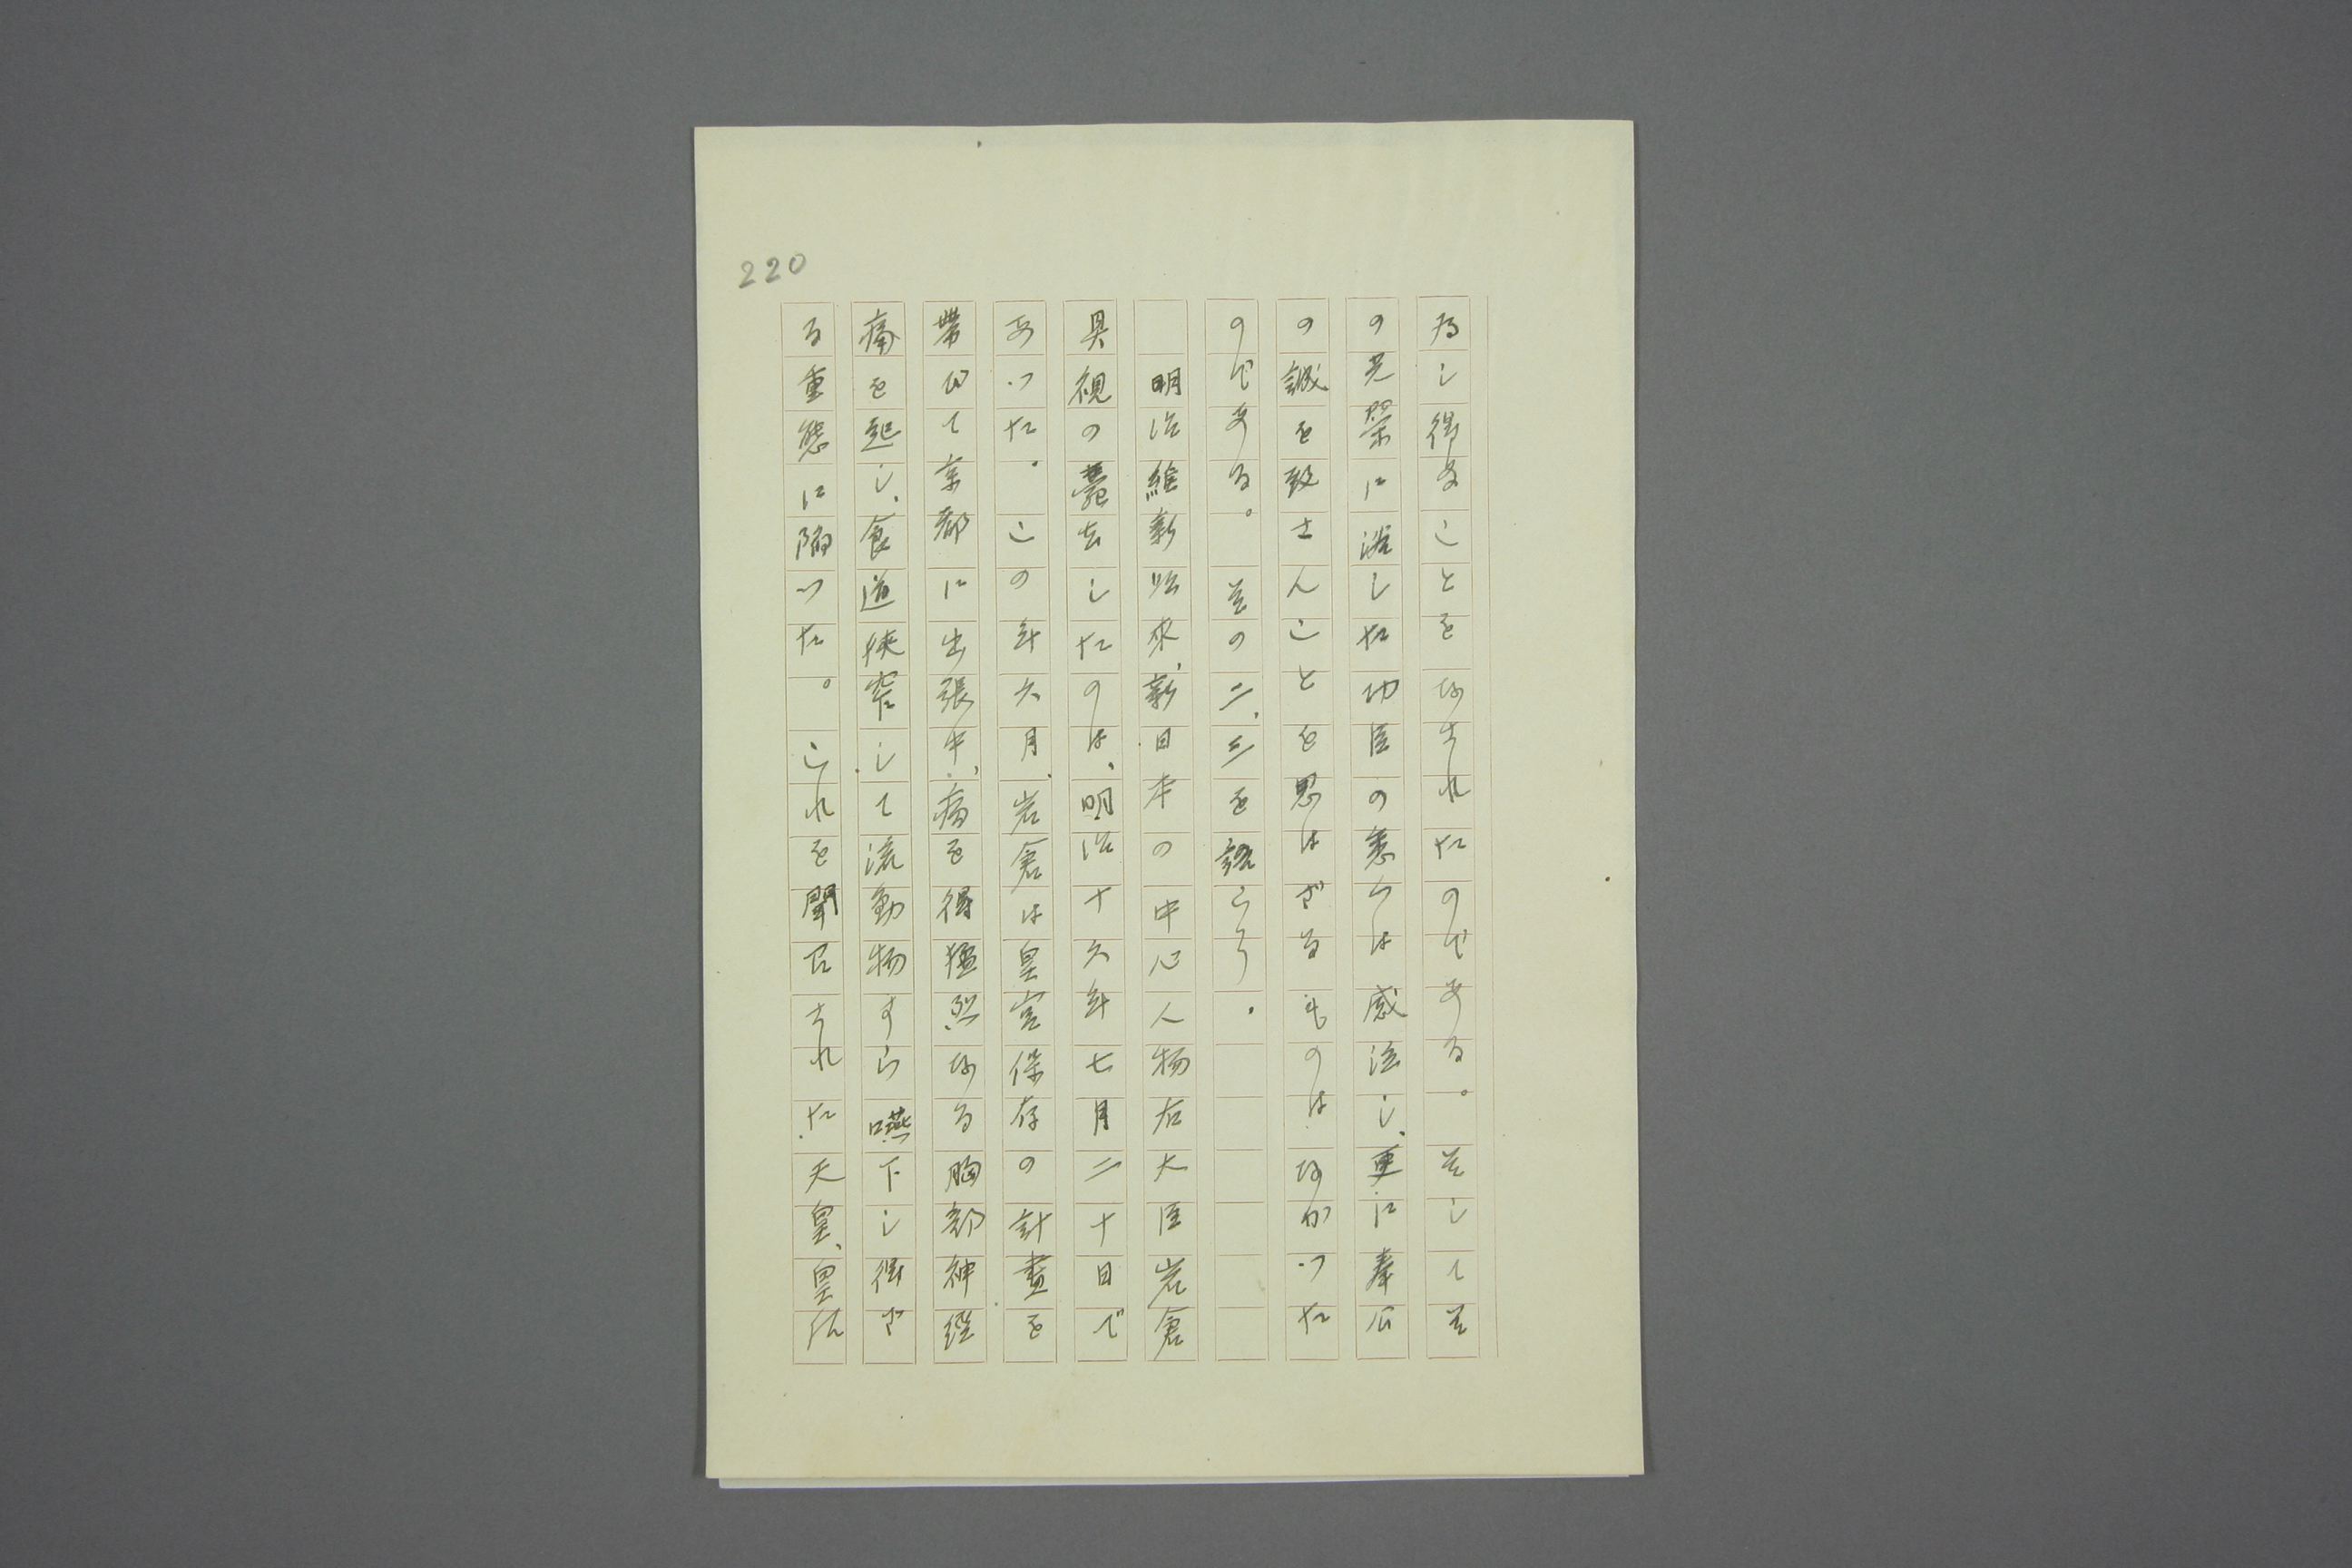 220
為し得ることをなされたのである。そしてそ
の光榮に浴した功臣の悉くは感泣し、更に奉公
の誠を致さんことを思はざるものはなかつた
のである。その二、三を語らう。
明治維新以来、新日本の中心人物右大臣岩倉
具視の薨去したのは、明治十六年七月二十日で
あつた。この年六月、岩倉は皇宮保存の計畫を
帯びて京都に出張中、病を得極烈なる胸部神経
痛を起し、食道狭窄して流動物すら嚥下し得ざ
る重態に陥つた。これを聞召された天皇、皇后